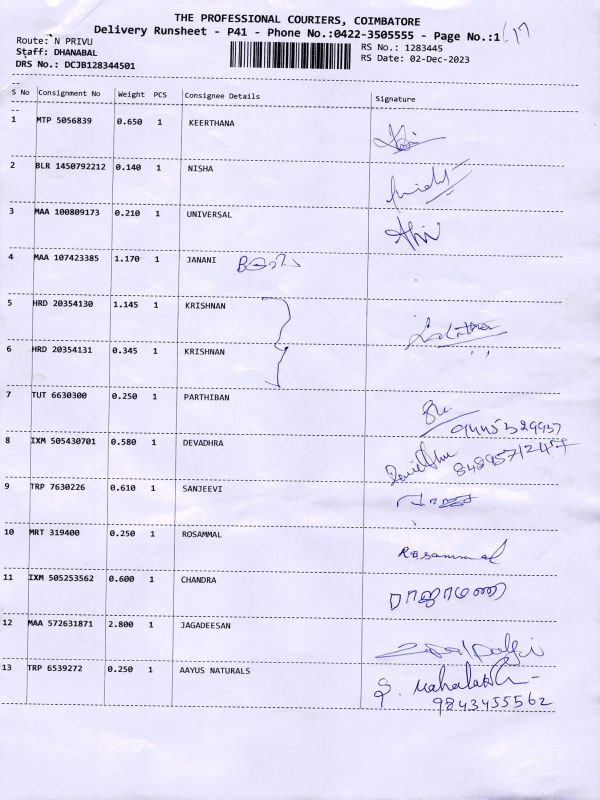 THE PROFESSIONAL COURIERS, COIMBATORE
Delivery Runsheet - P41 - Phone No.:0422-3505555 - Page No.:1/17
Route: N PRIVU
Staff: DHANABAL
DRS No.: DCJB128344501
RS No.: 1283445
RS Date: 02-Dec-2023
S No Consignment No Weight PCS Consignee Details Signature
1 MTP 5056839 0.650 1 KEERTHANA
2 BLR 1450792212 0.140 1 NISHA
3 MAA 100809173 0.210 1 UNIVERSAL
4 MAA 107423385 1.170 1 JANANI
5 HRD 20354130 1.145 1 KRISHNAN
Lalitha
6 HRD 20354131 0.345 1 KRISHNAN
7 TUT 6630300 0.250 1 PARTHIBAN
8 IXM 505430701 0.580 1 DEVADHRA
9 TRP 7630226 0.610 1 SANJEEVI
10 MRT 319400 0.250 1 ROSAMMAL Rosammal
11 IXM 505253562 0.600 1 CHANDRA ராஜாமணி
12 MAA 572631871 2.800 1 JAGADEESAN
13 TRP 6539272 0.250 1 AAYUS NATURALS
9843455562